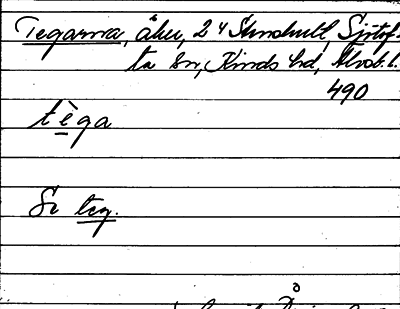 Tegarna, åker, 2 4 Stenshult, Sjötof-
ta sn, Kinds hd, Älvsb.l.
490
tèga
Se teg.